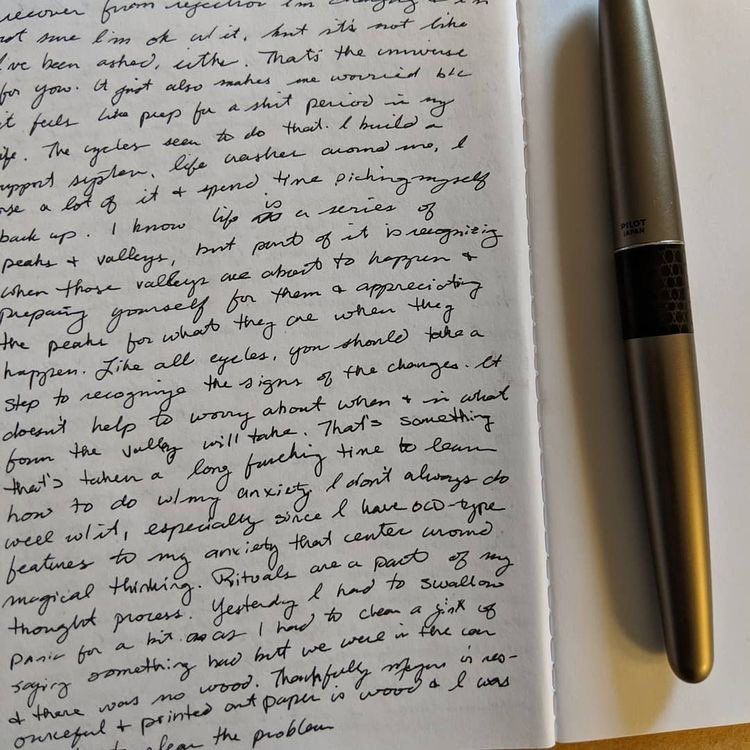 recover from rejection I'm changing & I'm
not sure I'm ok w/ it, but it's not like
I've been asked, either. That's the universe
for you. It just also makes me worried b/c
it feels like prep for a shit period in my
life. The cycles seem to do that. I build a
support system, life crashes around me, I
lose a lot of it & spend time picking myself
back up. I know life is a series of
peaks & valleys, but part of it is recognizing
when those valleys are about to happen &
preparing yourself for them & appreciating
the peaks for what they are when they
happen. Like all cycles, you should take a
step to recognize the signs of the changes. It
doesn't help to worry about when & in what
form the valley will take. That's something
that's taken a long fucking time to learn
how to do w/ my anxiety I don't always do
well w/ it, especially since I have OCD-type
features to my anxiety that center around
magical thinking. Rituals are a part of my
thought process. Yesterday I had to swallow
panic for a bit as I had to clean a jinx of
saying something bad but we were in the car
& there was no wood. Thankfully is res-
ourceful & printed out paper is wood & I was
to clear the problem
PILOT
JAPAN